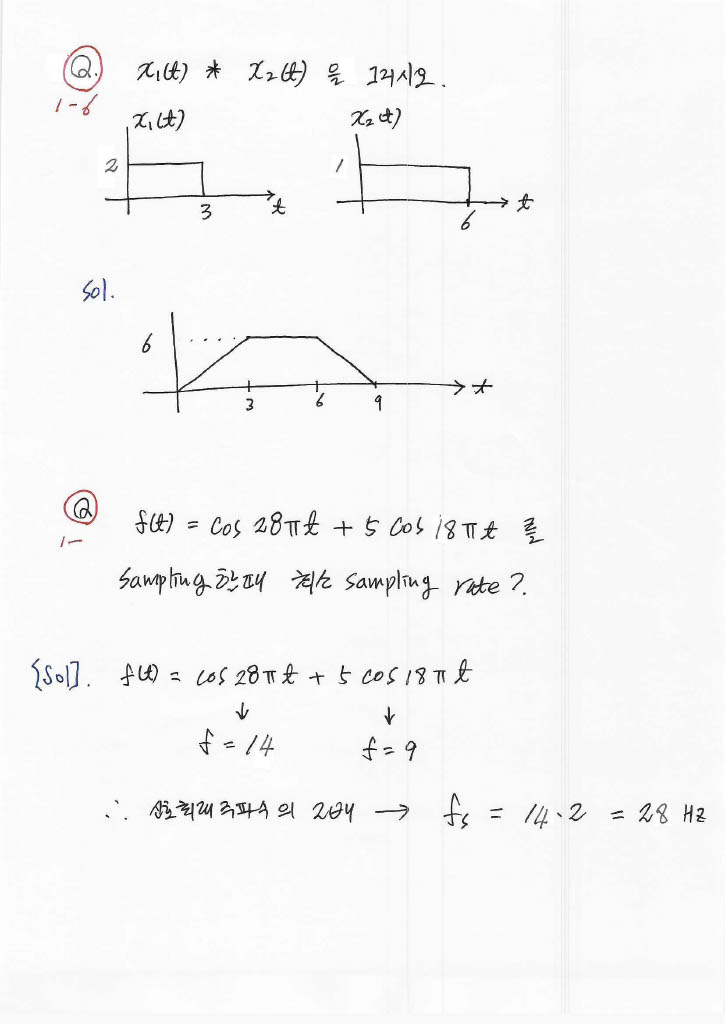 Q. x₁(t) * x₂(t) 을 그리시오.
1-6
x₁(t) x₂(t)
2 1
3 t 6 t
Sol.
6
3 6 9 t
Q f(t) = cos 28πt + 5 cos 18πt 를
1-
Sampling 할때 최소 sampling rate ?.
[Sol]. f(t) = cos 28πt + 5 cos 18πt
↓ ↓
f = 14 f = 9
∴ 신호최대주파수의 2배 → fs = 14·2 = 28 Hz